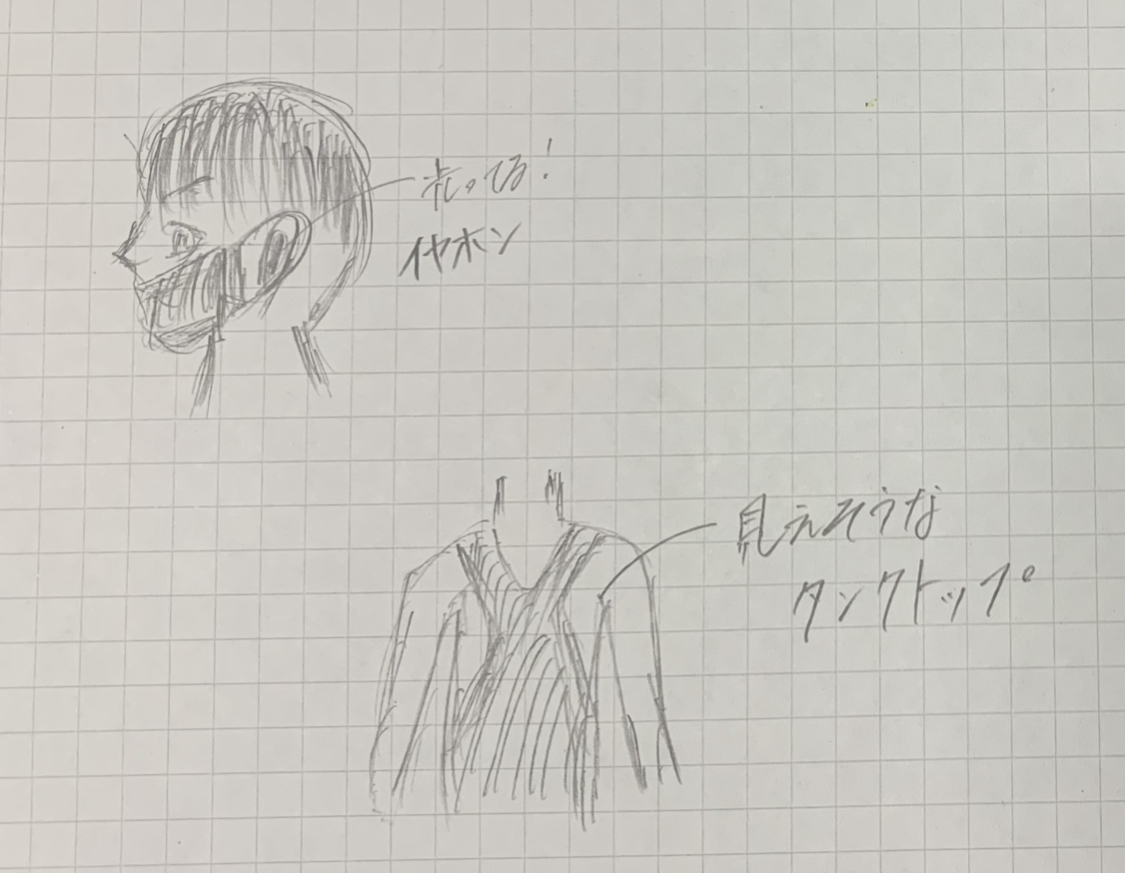 光ってる!
イヤホン
見えそうな
タンクトップ